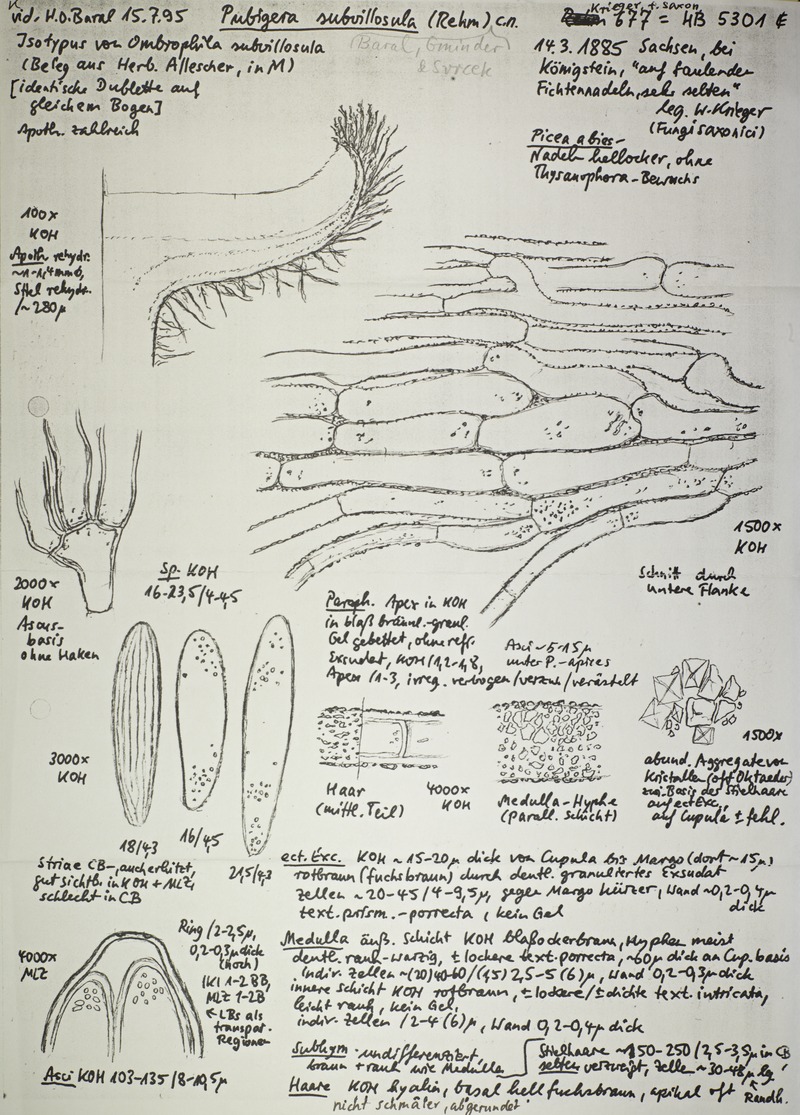 vid. H.O. Baral 15.7.95
Pubigera subvillosula (Rehm) c.n.
(Baral, Gminder
& Svrcek
Krieger, f. saxon.
677 = HB 5301 ¢
Isotypus von Ombrophila subvillosula
(Beleg aus Herb. Allescher, in M)
[identische Dublette auf
gleichem Bogen]
Apoth. zahlreich
14.3.1885 Sachsen, bei
Königstein, "auf faulenden
Fichtennadeln, sehr selten"
leg. W. Krieger
(Fungi saxonici)
Picea abies-
Nadeln hellocker, ohne
Thysanophora-Bewuchs
100x
KOH
Apoth. rehydr.
~1-1,4mmø,
Stiel rehydr.
/~280µ
1500x
KOH
Schnitt durch
untere Flanke
2000x
KOH
Ascus-
basis
ohne Haken
Sp. KOH
16-23,5/4-4,5
3000x
KOH
18/4,3
16/4,5
21,5/4,3
Striae CB-, auch erhitzt,
gut sichtb. in KOH + MLZ,
schlecht in CB
Paraph. Apex in KOH
in blaß bräunl.-granl.
Gel gebettet, ohne refr.
Exsudat, KOH /1,2-1,8,
Apex /1-3, irreg. verbogen/verzw./verästelt
Asci ~5-15µ
unter P.-apices
Haar
(mittl. Teil)
4000x
KOH
Medulla-Hyphe
(parall. Schicht)
1500x
abund. Aggregate von
Kristallen (oft Oktaeder)
zw. Basis der Stielhaare
auf ect. Exc.,
auf Cupula ± fehl.
ect. Exc. KOH ~15-20µ dick von Cupula bis Margo (dort ~15µ)
rotbraun (fuchsbraun) durch deutl. granuliertes Exsudat
Zellen ~20-45/4-9,5µ, gegen Margo kürzer, Wand ~0,2-0,4µ
dick
text. prism.-porrecta, kein Gel
Medulla äuß. Schicht KOH blaßockerbraun, Hyphen meist
deutl. rauh-warzig, ± lockere text. porrecta, ~60µ dick an Cup. basis
indiv. Zellen ~(20)40-60/(1,5)2,5-5(6)µ, Wand 0,2-0,3µ dick
innere Schicht KOH rotbraun, ± lockere/±dichte text. intricata,
leicht rauh, kein Gel,
indiv. Zellen /2-4(6)µ, Wand 0,2-0,4µ dick
Subhym. undifferenziert,
braun + rauh wie Medulla
Stielhaare ~150-250/2,5-3,5µ in CB
selten verzweigt, Zelle ~30-48µ lg.
Haare KOH hyalin, basal hell fuchsbraun, apikal oft
Randh.
nicht schmäler, abgerundet
4000x
MLZ
Ring /2-2,5µ,
0,2-0,3µ dick
(hoch)
IKI 1-2BB,
MLZ 1-2B
← LBs als
transpar.
Regionen
Asci KOH 103-135/8-10,5µ